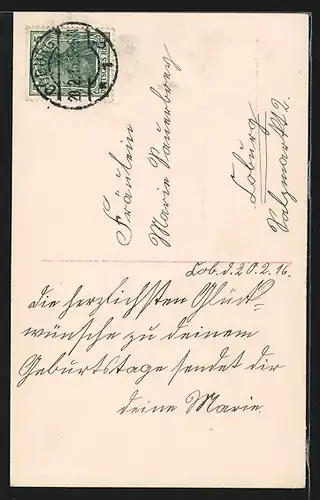 Fräulein
Marie Sauerbrey
Coburg
Salzmarkt 2.
Cob. d. 20.2.16.
die herzlichsten Glück-
wünsche zu deinem
Geburtstage sendet dir
deine Marie.